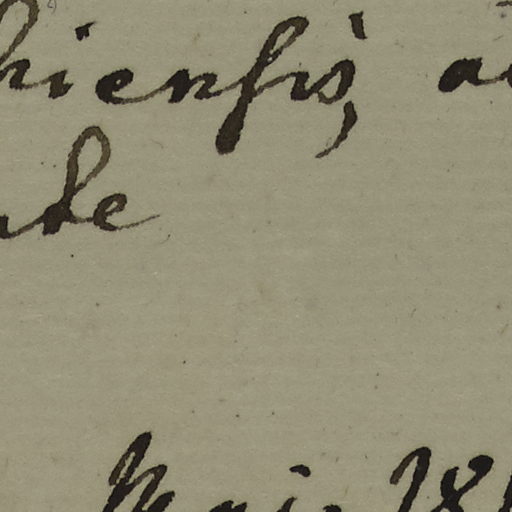 hiensis, a
nde
Maii 18